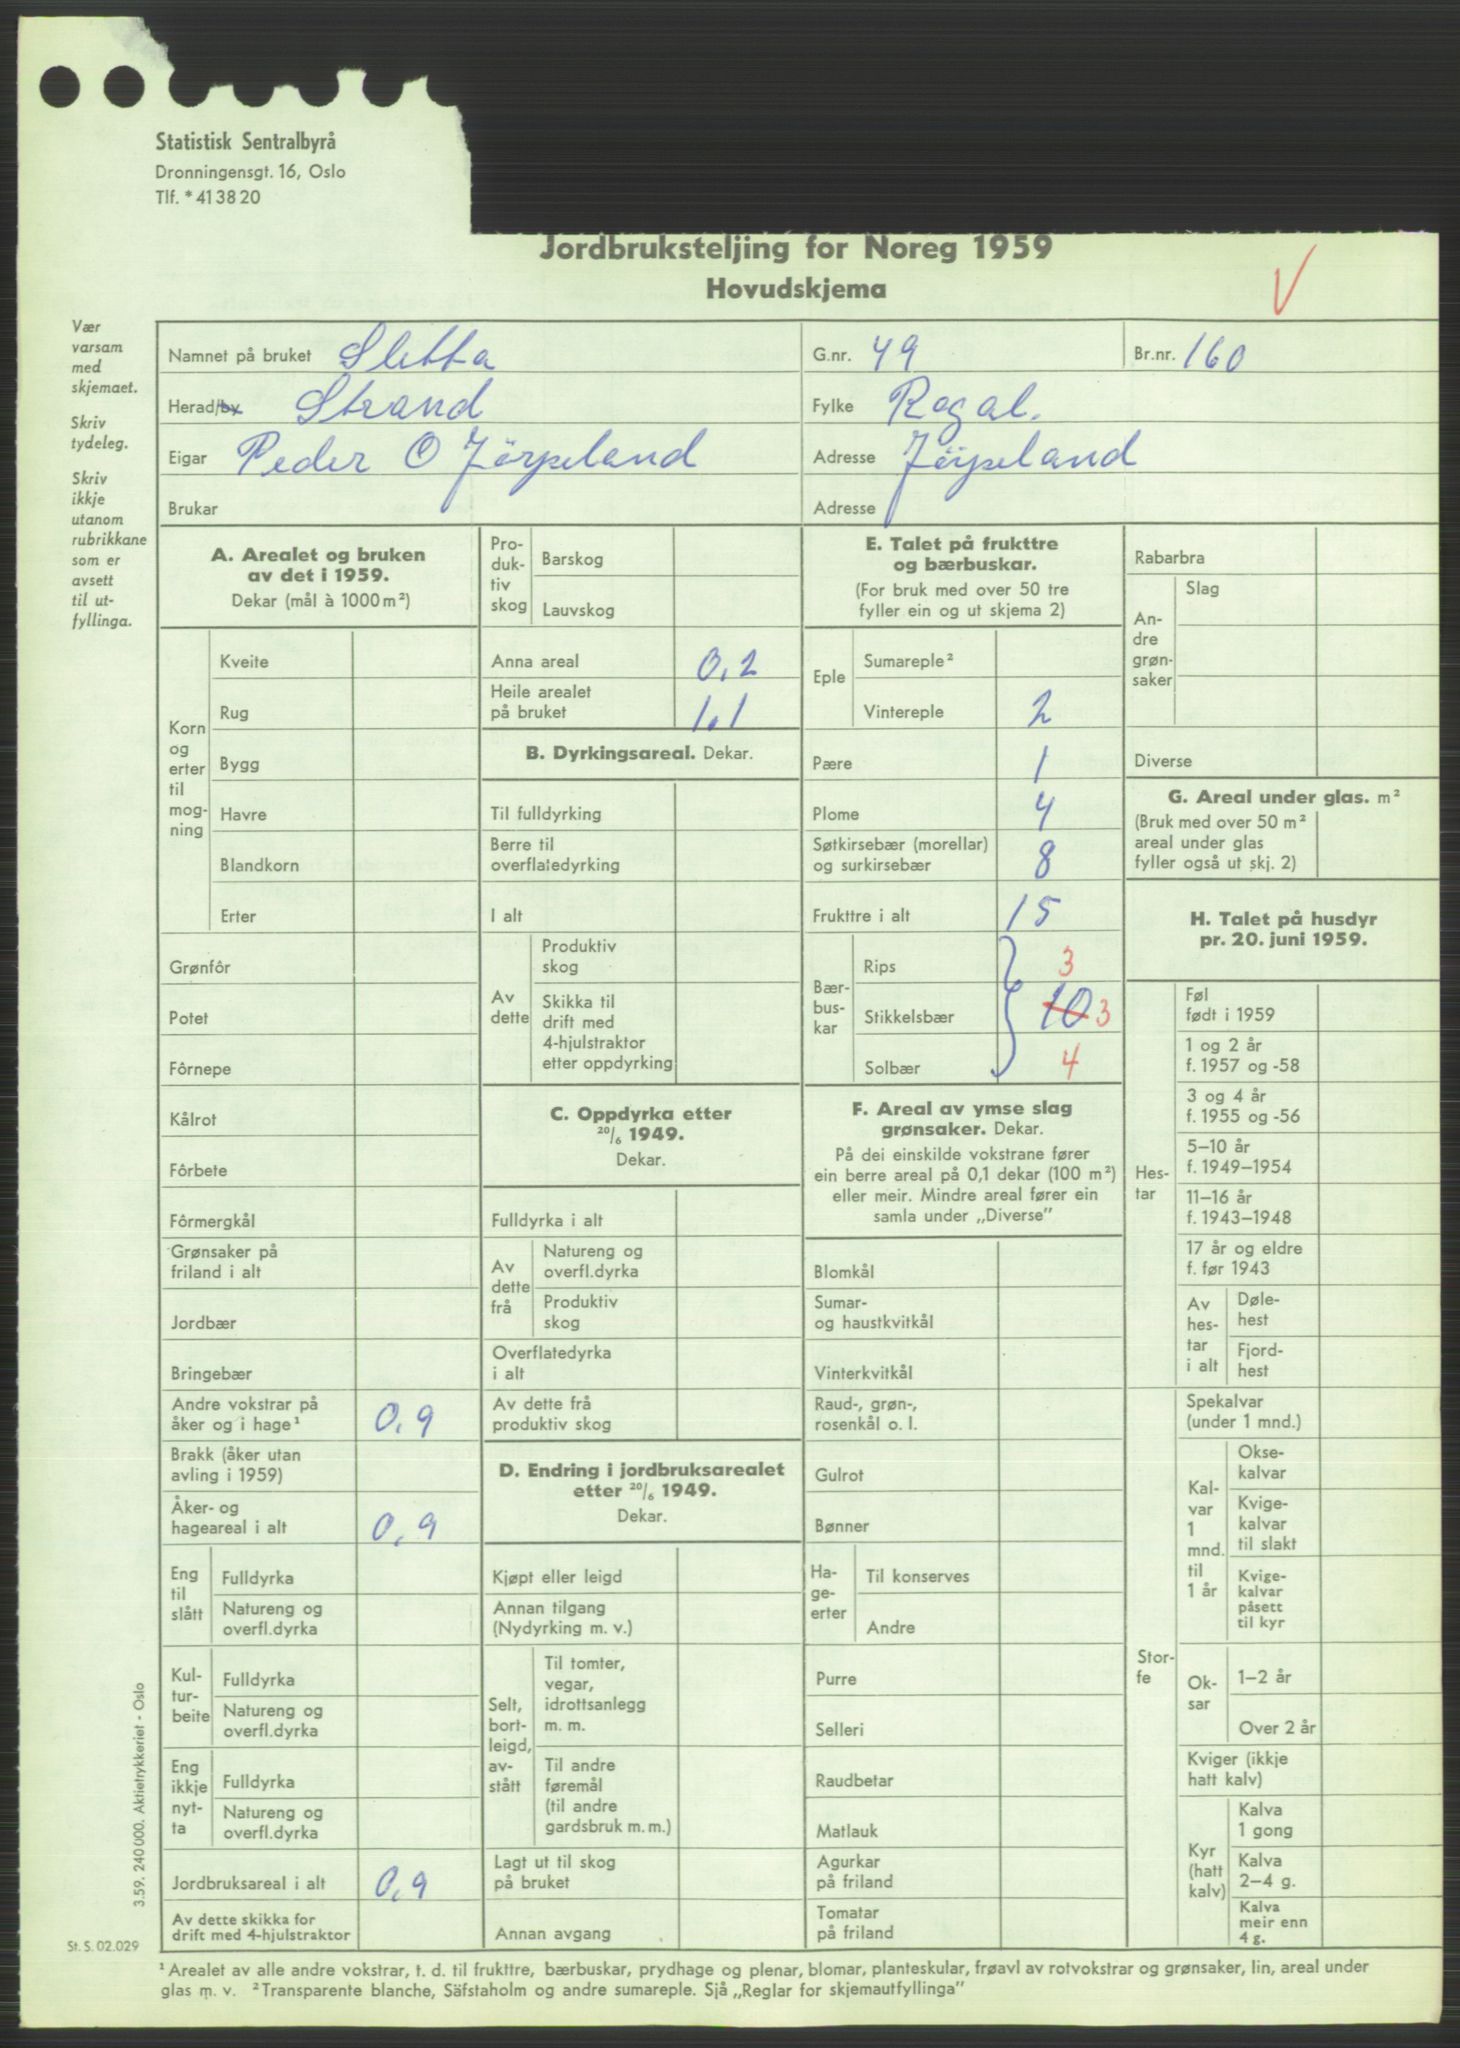 Statistisk Sentralbyrå
Dronningensgt. 16, Oslo
Tlf. * 41 38 20
Jordbruksteljing for Noreg 1959
Hovudskjema
V
Vær
varsam
med
skjemaet.
Skriv
tydeleg.
Skriv
ikkje
utanom
rubrikkane
som er
avsett
til ut-
fyllinga.
Namnet på bruket Sletta
G.nr. 49
Br.nr. 160
Herad/by Strand
Fylke Rogal.
Eigar Peder O Jörpeland
Adresse Jörpeland
Brukar
Adresse
A. Arealet og bruken
av det i 1959.
Dekar (mål à 1000 m²)
Korn
og
erter
til
mog-
ning
Kveite
Rug
Bygg
Havre
Blandkorn
Erter
Grønfôr
Potet
Fôrnepe
Kålrot
Fôrbete
Fôrmergkål
Grønsaker på
friland i alt
Jordbær
Bringebær
Andre vokstrar på
åker og i hage¹ 0,9
Brakk (åker utan
avling i 1959)
Åker- og
hageareal i alt 0,9
Eng
til
slått
Fulldyrka
Natureng og
overfl.dyrka
Kul-
tur-
beite
Fulldyrka
Natureng og
overfl.dyrka
Eng
ikkje
nyt-
ta
Fulldyrka
Natureng og
overfl.dyrka
Jordbruksareal i alt 0,9
Av dette skikka for
drift med 4-hjulstraktor
Pro-
duk-
tiv
skog
Barskog
Lauvskog
Anna areal 0,2
Heile arealet
på bruket 1,1
B. Dyrkingsareal. Dekar.
Til fulldyrking
Berre til
overflatedyrking
I alt
Av
dette
Produktiv
skog
Skikka til
drift med
4-hjulstraktor
etter oppdyrking
C. Oppdyrka etter
20/6 1949.
Dekar.
Fulldyrka i alt
Av
dette
frå
Natureng og
overfl.dyrka
Produktiv
skog
Overflatedyrka
i alt
Av dette frå
produktiv skog
D. Endring i jordbruksarealet
etter 20/6 1949.
Dekar.
Kjøpt eller leigd
Annan tilgang
(Nydyrking m. v.)
Selt,
bort-
leigd,
av-
stått
Til tomter,
vegar,
idrottsanlegg
m. m.
Til andre
føremål
(til andre
gardsbruk m. m.)
Lagt ut til skog
på bruket
Annan avgang
E. Talet på frukttre
og bærbuskar.
(For bruk med over 50 tre
fyller ein og ut skjema 2)
Eple
Sumareple²
Vintereple 2
Pære 1
Plome 4
Søtkirsebær (morellar)
og surkirsebær 8
Frukttre i alt 15
Bær-
bus-
kar
Rips 3
Stikkelsbær 10 3
Solbær 4
F. Areal av ymse slag
grønsaker. Dekar.
På dei einskilde vokstrane fører
ein berre areal på 0,1 dekar (100 m²)
eller meir. Mindre areal fører ein
samla under „Diverse”
Blomkål
Sumar-
og haustkvitkål
Vinterkvitkål
Raud-, grøn-,
rosenkål o. l.
Gulrot
Bønner
Ha-
ge-
erter
Til konserves
Andre
Purre
Selleri
Raudbetar
Matlauk
Agurkar
på friland
Tomatar
på friland
Rabarbra
An-
dre
grøn-
saker
Slag
Diverse
G. Areal under glas. m²
(Bruk med over 50 m²
areal under glas
fyller også ut skj. 2)
H. Talet på husdyr
pr. 20. juni 1959.
Hes-
tar
Føl
født i 1959
1 og 2 år
f. 1957 og -58
3 og 4 år
f. 1955 og -56
5–10 år
f. 1949–1954
11–16 år
f. 1943–1948
17 år og eldre
f. før 1943
Av
hes-
tar
i alt
Døle-
hest
Fjord-
hest
Stor-
fe
Spekalvar
(under 1 mnd.)
Kal-
var
1
mnd.
til
1 år
Okse-
kalvar
Kvige-
kalvar
til slakt
Kvige-
kalvar
påsett
til kyr
Ok-
sar
1–2 år
Over 2 år
Kviger (ikkje
hatt kalv)
Kyr
(hatt
kalv)
Kalva
1 gong
Kalva
2–4 g.
Kalva
meir enn
4 g.
3.59. 240 000. Aktietrykkeriet - Oslo
St. S. 02.029
¹ Arealet av alle andre vokstrar, t. d. til frukttre, bærbuskar, prydhage og plenar, blomar, planteskular, frøavl av rotvokstrar og grønsaker, lin, areal under
glas m. v. ² Transparente blanche, Säfstaholm og andre sumareple. Sjå „Reglar for skjemautfyllinga”